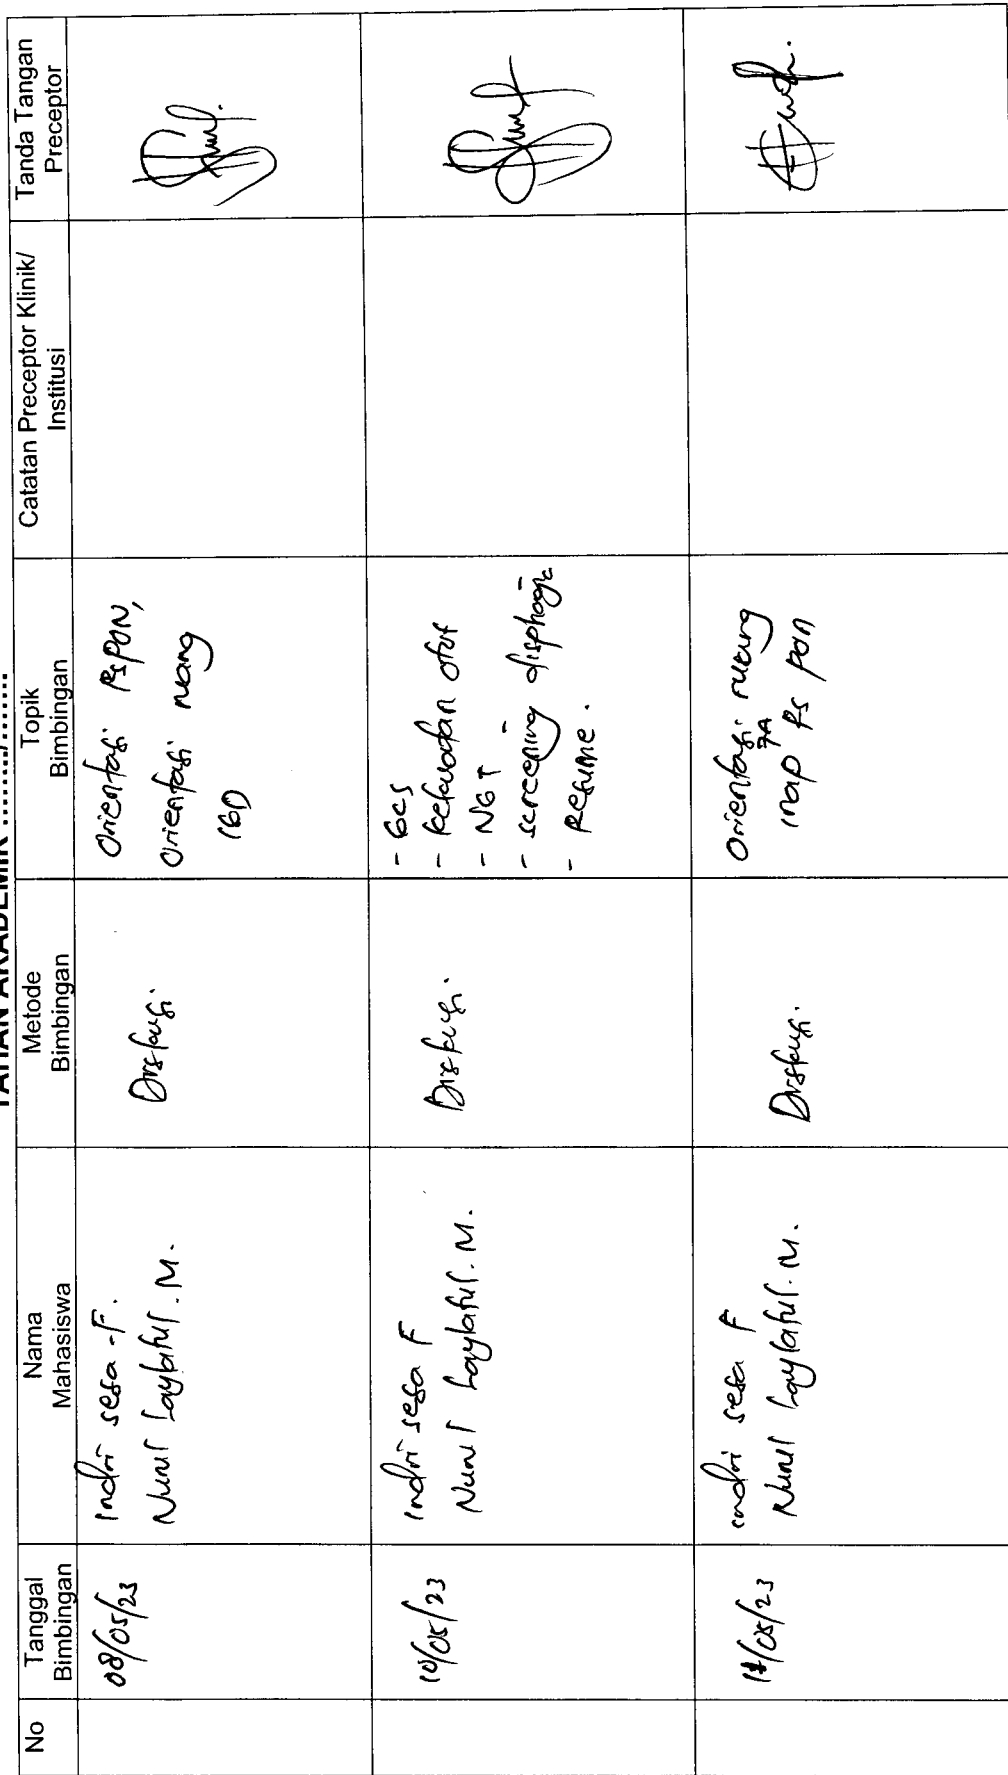 TAHUN AKADEMIK ......../........
No
Tanggal
Bimbingan
Nama
Mahasiswa
Metode
Bimbingan
Topik
Bimbingan
Catatan Preceptor Klinik/
Institusi
Tanda Tangan
Preceptor
08/05/23
Indri sesa .F.
Nurul Laylatul. M.
Diskusi
Orientasi RSPON,
Orientasi ruang
IGD
10/05/23
Indri sesa F
Nurul Laylatul. M.
Diskusi
- GCS
- kekuatan otot
- NGT
- screening disphagia
- Resume.
/05/23
Indri sesa F
Nurul Laylatul. M.
Diskusi
Orientasi ruang
7A
inap RS PON